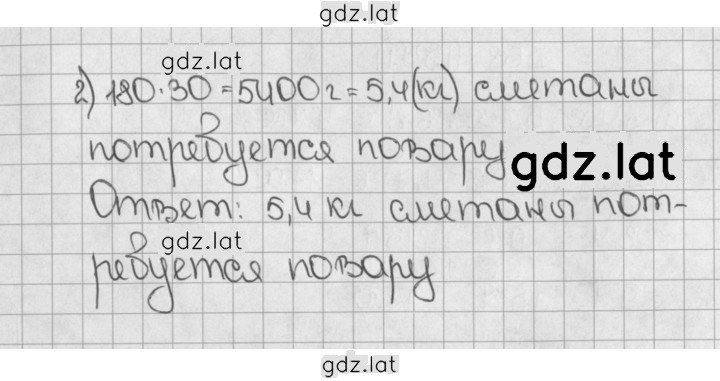 gdz.lat
gdz.lat
2) 180·30=5400г=5,4(кг) сметаны
потребуется повару
gdz.lat
Ответ: 5,4 кг сметаны пот-
gdz.lat
ребуется повару
gdz.lat